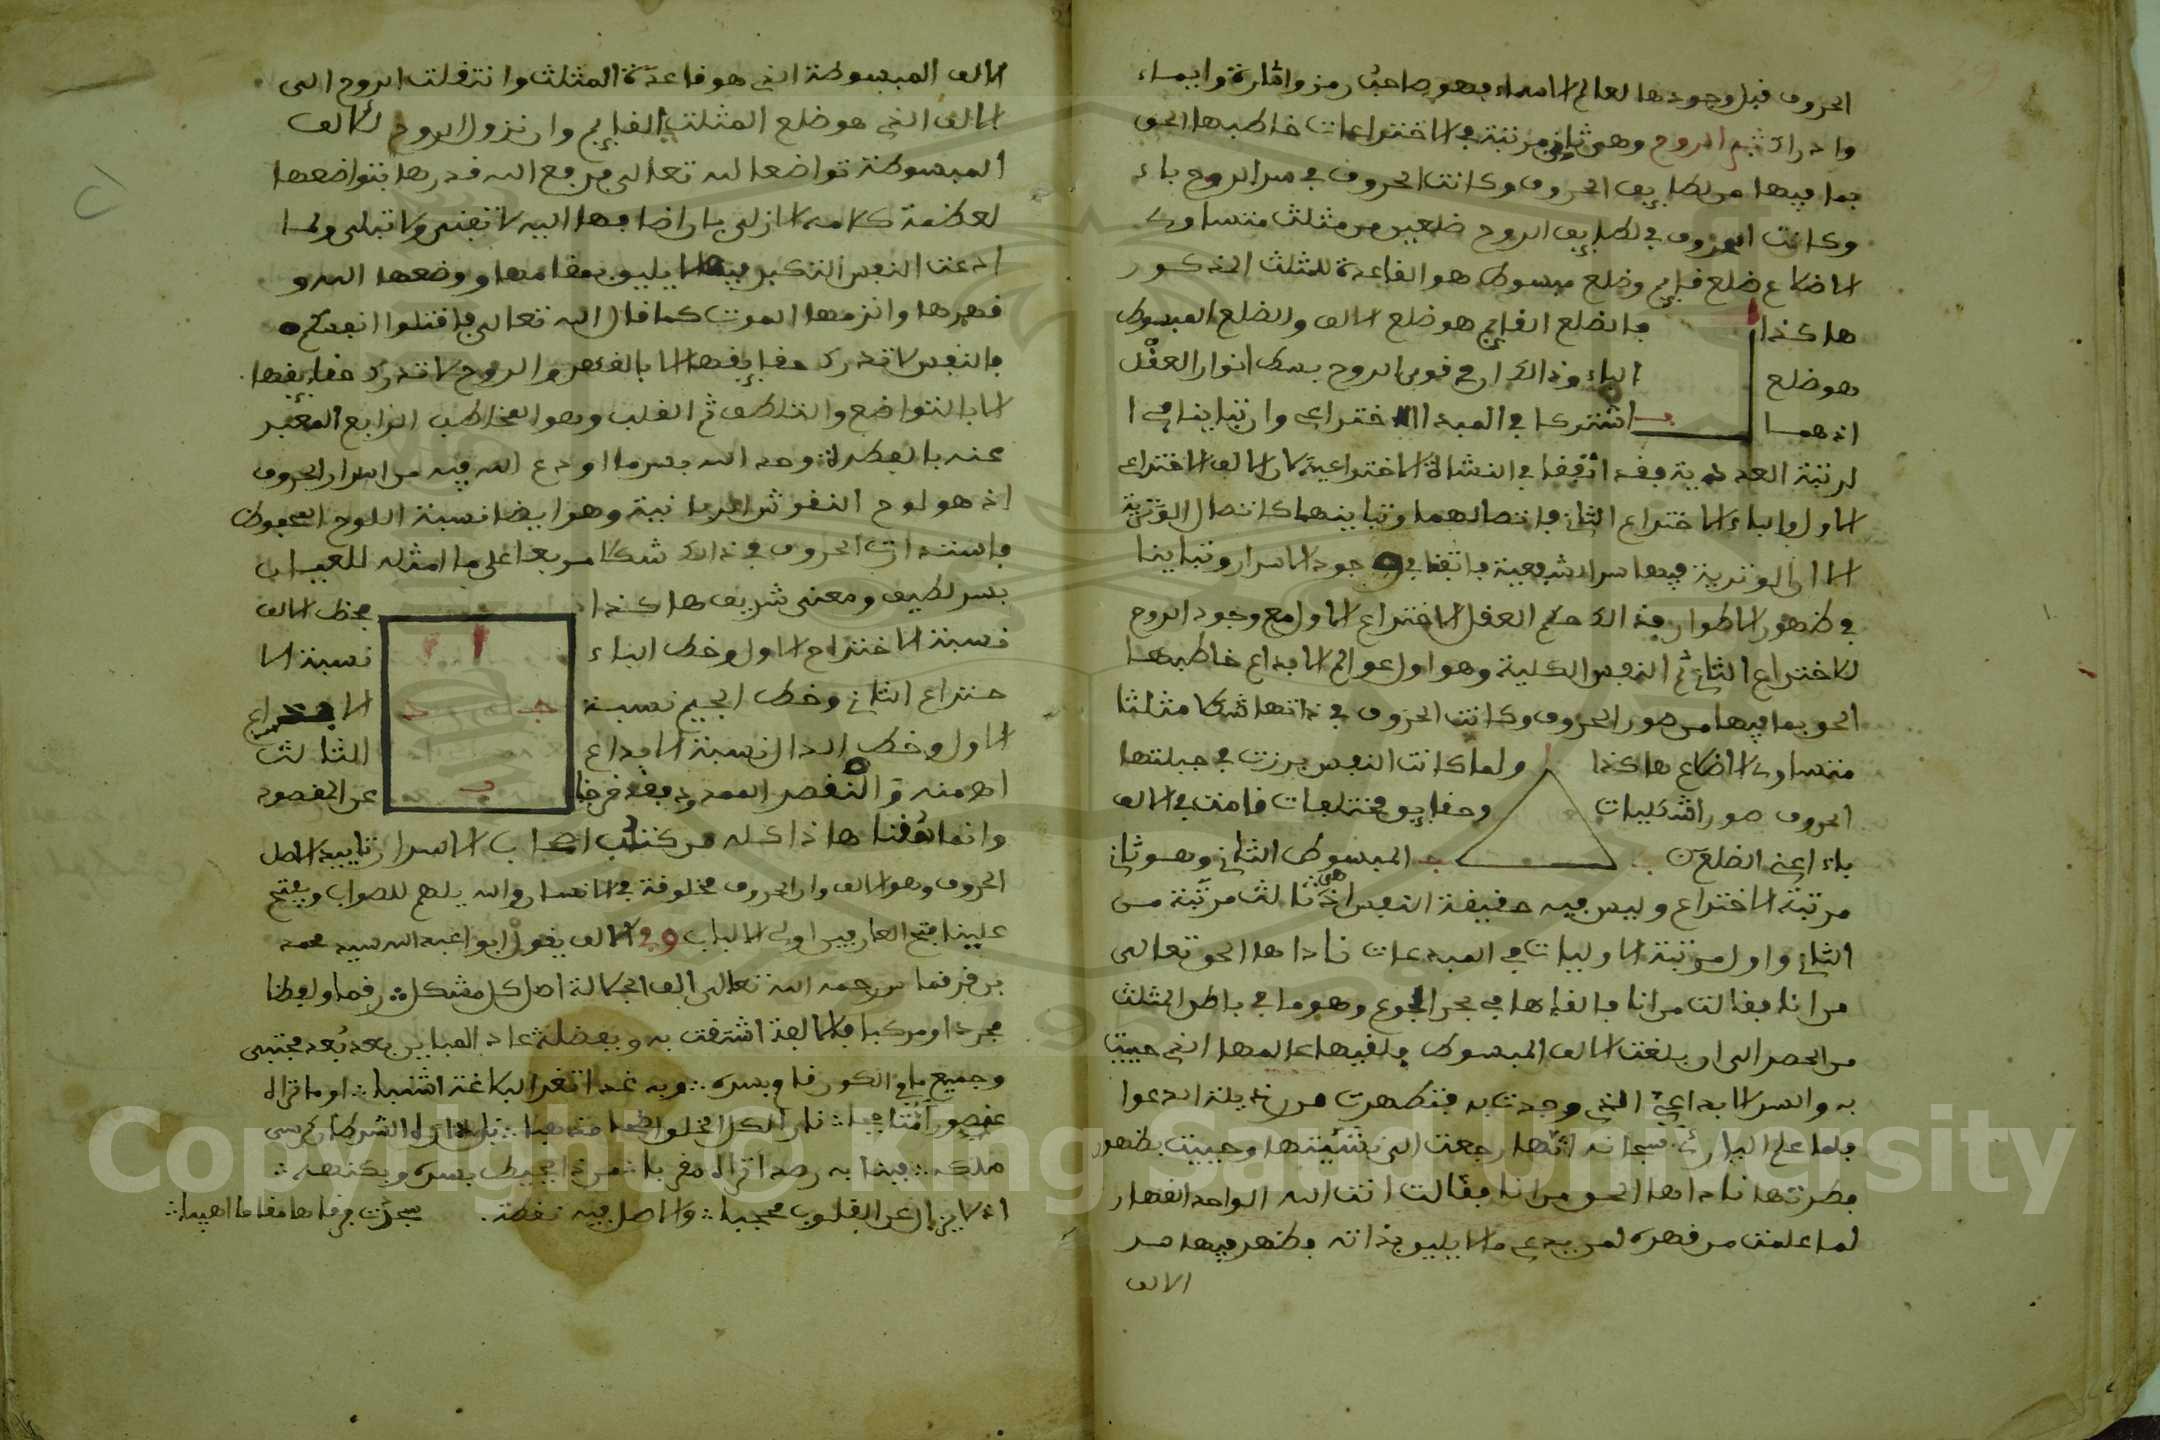 الحروف قبل وجودها لعالم الاسماء فهو صاحب رمز واشارة وايماء
وادراك ثم الروح وهي ثاني مرتبة في الاختراعات خاطبها الحق
بما فيها من لطايف الحروف وكانت الحروف في سر الروح باء
وكانت الحروف في لطايف الروح ضلعين من مثلث متساوي
الاضلاع ضلع قايم وضلع مبسوط هو القاعدة للمثلث المذكور
هاكذا ا فالضلع القايم هو ضلع الالف والضلع المبسوط
هو ضلع الباء وذالك ان في قوى الروح بسط انوار العقل
اذ هما ب اشتركا في المبدا الاختراعي وان تباينا في ا
لرتبة العددية فقد اتفقا في النشاة الاختراعية لان الالف الاختراع
الاول والباء الاختراع الثاني فاتصالهما وتباينهما كاتصال الوترية
الا ان الوترية فيها سر الشفعية فاتفقا في وجود الاسرار وتباينا
في ظهور الاطوار فذالك حكم العقل الاختراع الاول مع وجود الروح
الاختراع الثاني ثم النفس الكلية وهو اول عوالم الابداع خاطبها
الحق بما فيها من صور الحروف وكانت الحروف في ذاتها شكلا مثلثا
متساوى الاضلاع هاكذا ا ولما كانت النفس برزت في جبلتها
الحروف صور اشكليات وحقايق مختلفات قامت في الالف
باء اعني الضلع المبسوط الثاني وهو ثاني
مرتبة الاختراع وليس فيه حقيقة النفس اذ هي ثالث مرتبة من
الثاني واول مرتبة الاوليات في المبدعات ناداها الحق تعالى
من انا فقالت من انا فالقاها في بحر الجوع وهو ما في باطن المثلث
من الحصر الى ان بلغت الالف المبسوط فلقيها عالمها الذي حييت
به والسر الابداعي الذي وجدت به فتطهرت من رذيلة الدعوا
فلما علم البارئ سبحانه انها رجعت الى نشيتها وحييت بظهور
فطرتها ناداها الحق من انا فقالت انت الله الواحد القهار
لما علمت من قهره لمن يدعي ما لا يليق بذاته فظهر فيها سر
الالف
الالف المبسوطة الذي هو قاعدة المثلث وانتقلت الروح الى
الالف الذي هو ضلع المثلث القايم وان نزول الروح لالف
المبسوطة تواضعا لله تعالى فرفع الله قدرها بتواضعها
لعظمة كلامه الازلي بان اضافها اليه لا تفنى ولا تبلى ولما
ادعت النفس التكبر فيها لا يليق بمقامها ووضعها الله و
قهرها والزمها الموت كما قال الله تعالى فاقتلوا انفسكم
فالنفس لا تدرك حقايقها الا بالقهر والروح لا تدرك حقايقها
الا بالتواضع والتلطف ثم القلب وهو المخاطب الرابع المعبر
عنه بالفطرة وحد الله بسر ما اودع الله فيه من اسرار الحروف
اذ هو لوح النقوش الربانية وهو ايضا نسبة اللوح المحفوظ
فاستدارت الحروف في ذالك شكلا مربعا على ما امثله للعيان
بسر لطيف ومعنى شريف هاكذا فخط الالف
نسبة الاختراع الاول وخط الباء ا نسبة الا
ختراع الثاني وخط الجيم نسبة جـ د الابداع
الاول وخط الدال نسبة الابداع الثالث
اهـ منه والنقصر الممدود فقد خرجنا ب عن المقصود
وانما سقنا هاذا كله من كتب اصحاب الاسرار تاييد الاصل
الحروف وهو الالف وان الحروف مخلوقة في الانسان والله يلهم للصواب ويفتح
علينا فتح العارفين اولى الالباب وفي الالف يقول ابوا عبد الله سيد محمد
بن قرقماس رحمه الله تعالى الف الجلالة اصل كل مشكل رقما ولفظا
مجردا ومركبا فلالفة اشتقت به وبفضله عاد المباين بعد بعد مجتبى
وجميع ما في الكون قام بسره وبه غدا ثغر البلاغة اشنبا او ما تراه
ملكه فبدا به رصدا تراه مقربا من ذا يحيط بسره وبكنهه
اذ لا يزال عن القلوب محجبا والاصل فيه نقطة